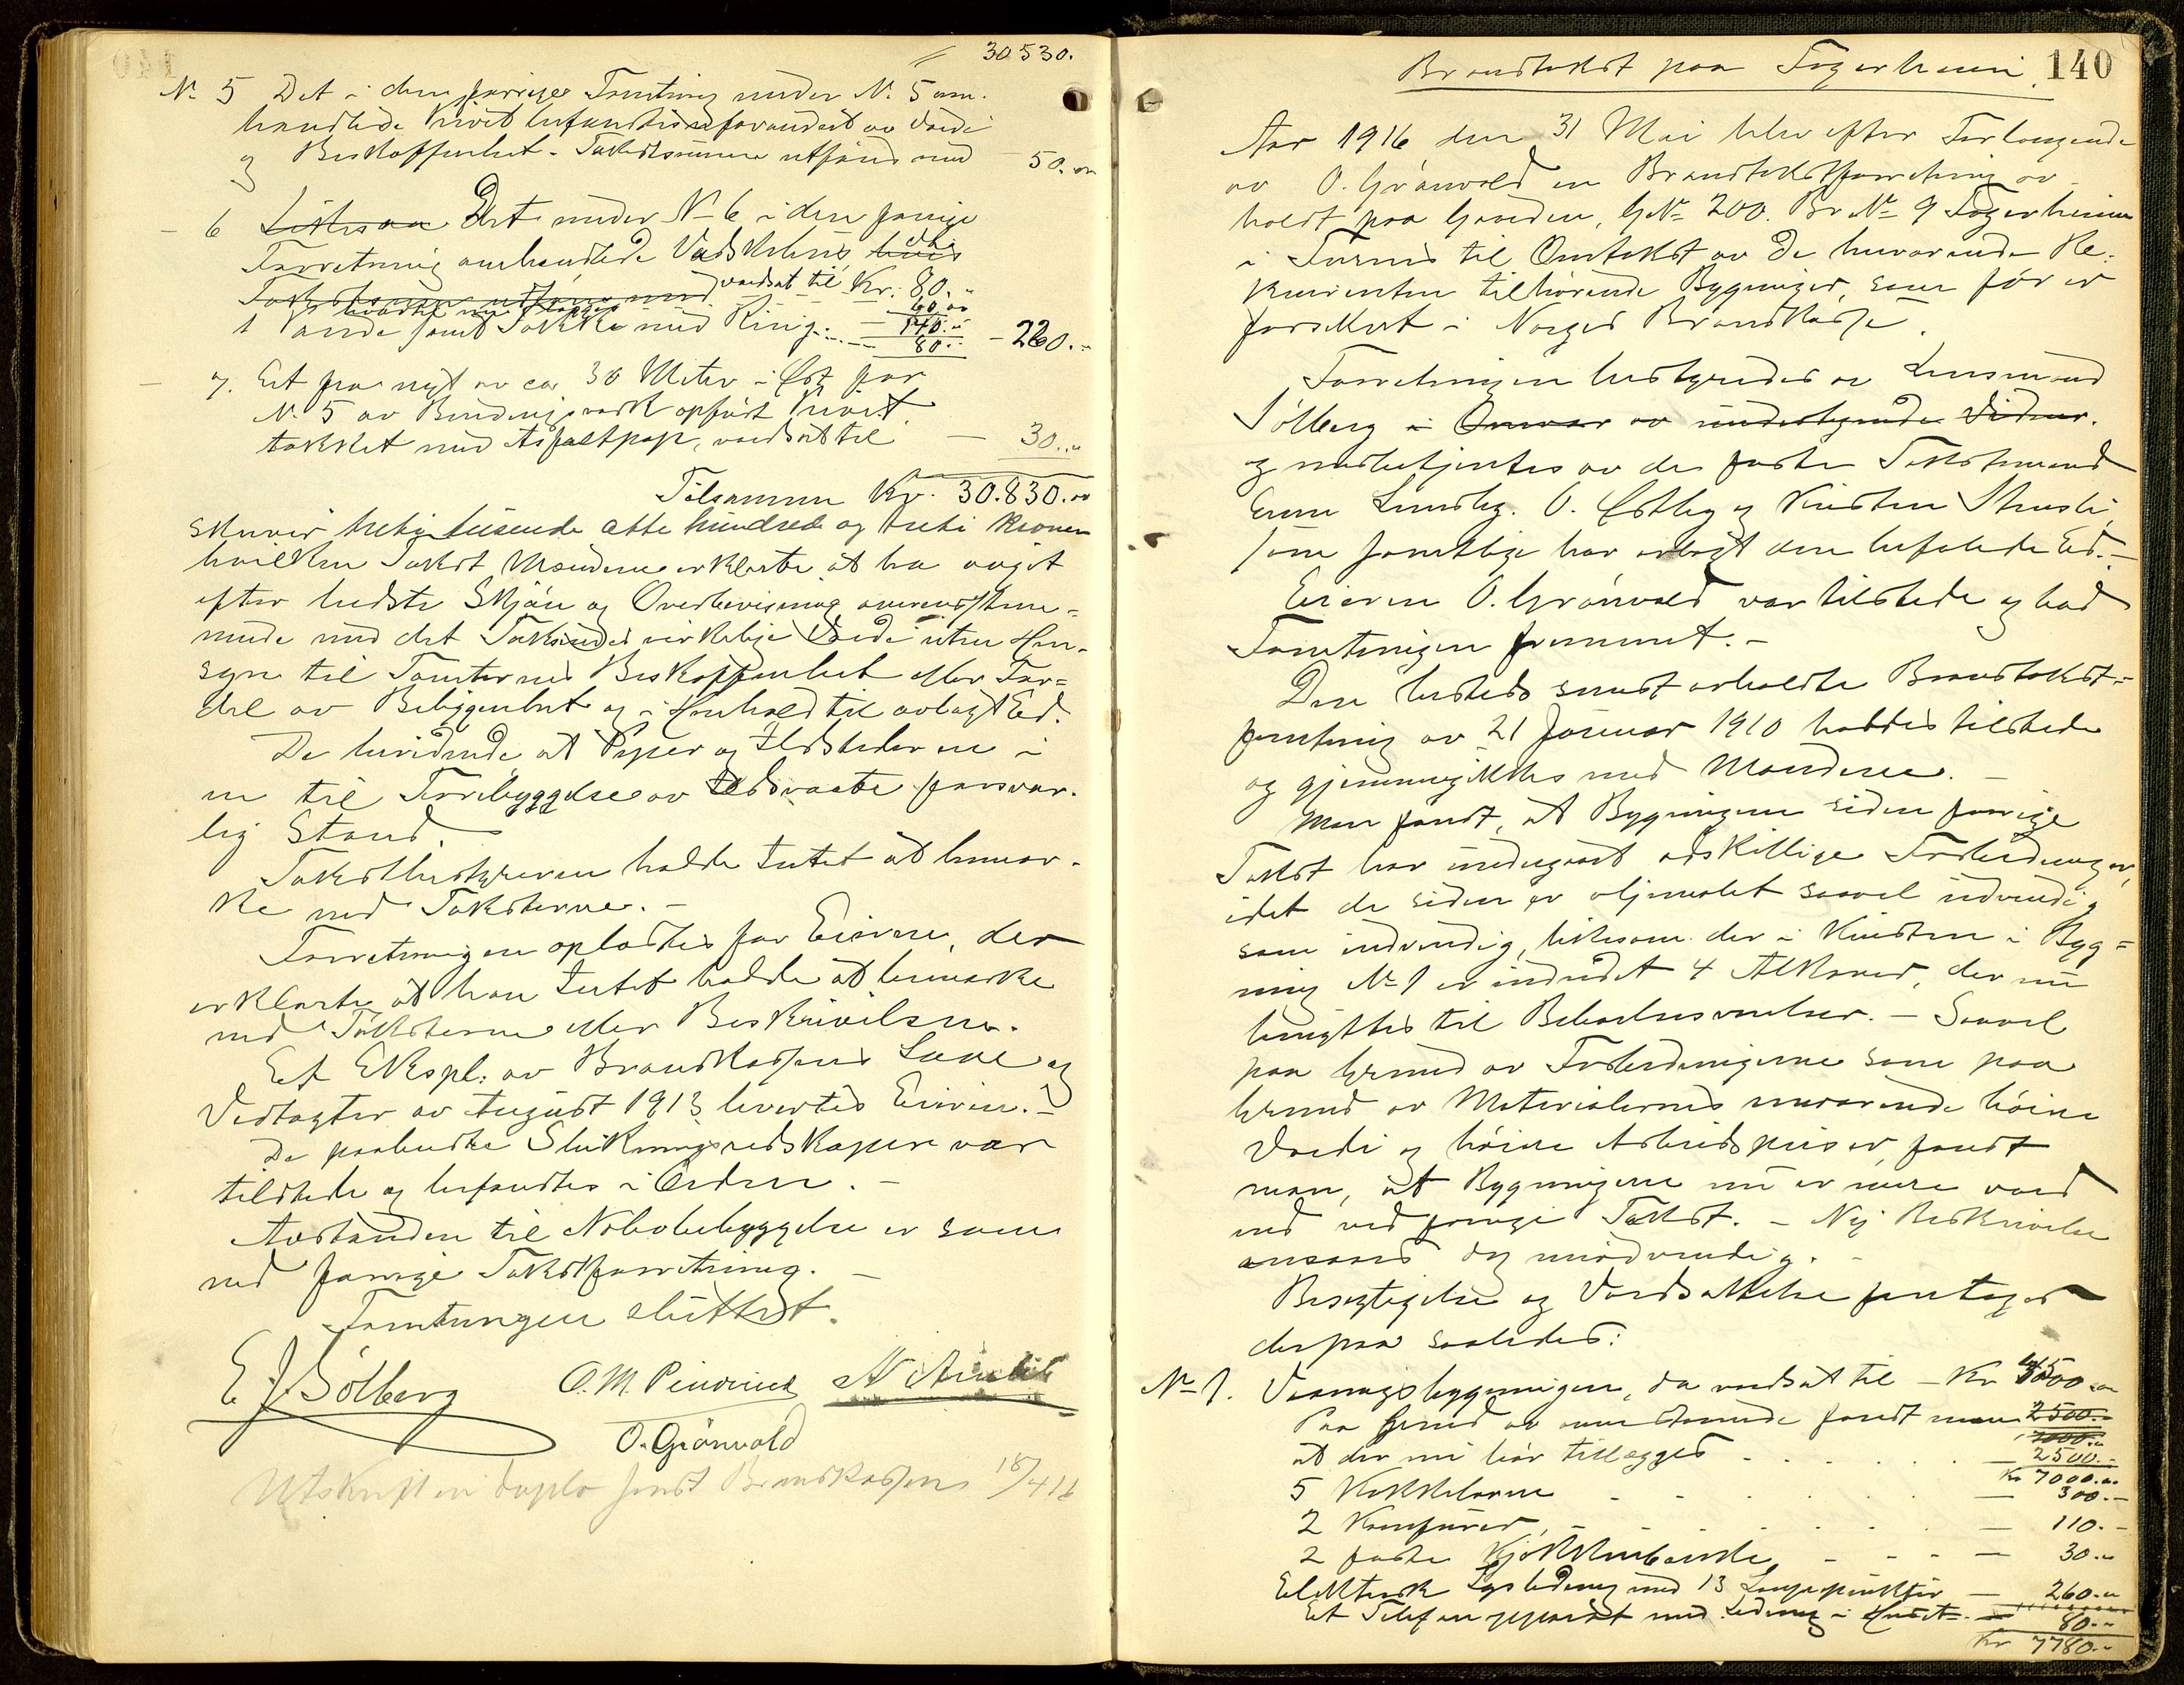 30530.
N. 5 Det i den forrige Forretning under N. 5 om-
handlede Privet befandtes uforandret av Værdi
og Beskaffenhet. Takstsummen utføres med - 50.00
- 6 Likesaa Det under N. 6 i den forrige
Forretning omhandlede Vadskehus blev
Takstsummen utføres med værdsat til Kr. 80.-
60.00
140.-
1 Pande samt Takke med Ring - 80.- - 220.-
- 7. Et fra nyt av ca 30 Meter i Øst for
N. 5 av Bindingsværk opført Privet
takket med Asfaltpap, værdsat til - 30.-
Tilsammen Kr. 30.830.00
skriver treti tusende otte hundrede og treti Kroner
hvilken Takst Mændene erklærte at ha avgit
efter bedste Skjøn og Overbevisning overensstem-
mende med det Takseredes virkelige Værdi uten Hen-
syn til Tomternes Beskaffenhet eller For-
del av Beliggenhet og i Henhold til avlagt Ed.
De bevidnede, at Piper og Ildsteder er i
en til Forebyggelse av Ildsvaade forsvar-
lig Stand.
Takstbestyreren hadde Intet at bemær-
ke ved Taksterne.-
Forretningen oplæstes for Eieren, der
erklærte at han Intet hadde at bemærke
ved Taksterne eller Beskrivelsen.
Et Ekspl. av Brandkassens Love og
Vedtægter av August 1913 levertes Eieren.-
De paabudte Slukningsredskaper var
tilstede og befandtes i Orden.-
Avstanden til Nabobebyggelse er som
ved forrige Takstforretning.-
Forretningen sluttet.
E J. Sølberg
O. Grönvold
Utskrift in duplo sendt Brandkassen 18/4 16
Brandtakst paa Fagerheim 140
Aar 1916 den 31 Mai blev efter Forlangende
av O. Grönvold en Brandtakstforretning av-
holdt paa Gaarden, GN. 200. Br N. 9 Fagerheim
i Furnes til Omtakst av de herværende Re-
kvirenten tilhørende Bygninger, som før er
forsikret i Norges Brandkasse.
Forretningen bestyredes av Lensmand
Sølberg i Overvær av undertegnede Vidner.
og medbetjentes av de faste Takstmænd
som samtlige har avlagt den befalede Ed.-
Eieren O. Grönvold var tilstede og bad
Forretningen fremmet.-
Den herteds senest avholdte Brandtakst-
forretning av 21 Januar 1910 haddes tilstede
og gjennemgikkes med Mændene.-
Man fandt, at Bygningene siden forrige
Takst har undergaat adskillige Forbedringer,
idet de siden er oljemalet saavel utvendig
som indvendig, likesom der i Kvisten i Byg-
ning N. 1 er indredet 4 Alkover, der nu
benyttes til Beboelsesværelser.- Saavel
paa Grund av Forbedringerne som paa
Grund av Materialernes nuværende høiere
Værdi og høiere Arbeidspriser, fandt
man, at Bygningerne nu er mere værd
end ved forrige Takst.- Ny Beskrivelse
ansaaes dog unødvendig.-
Besigtigelse og Værdsættelse foretoges
derpaa saaledes:
N. 1. Vaaningsbygningen, da værdsat til - Kr 4500.00
Paa Grund av ovenstaaende fandt man 2500.-
at der nu bør tillægges - 2500.-
Kr 7000.00
5 Kakkelovne - 300.-
2 Komfurer, - 110.-
2 faste Kjøkkenbænke - 30.-
Elektrisk Lysledning med 13 Lampepunkter - 260.-
Et Telefonapparat med Ledning i Huset - 80.-
Kr 7780.-